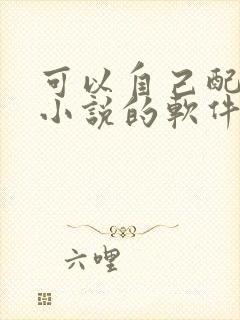 可以自己配
小說的軟件
六哩